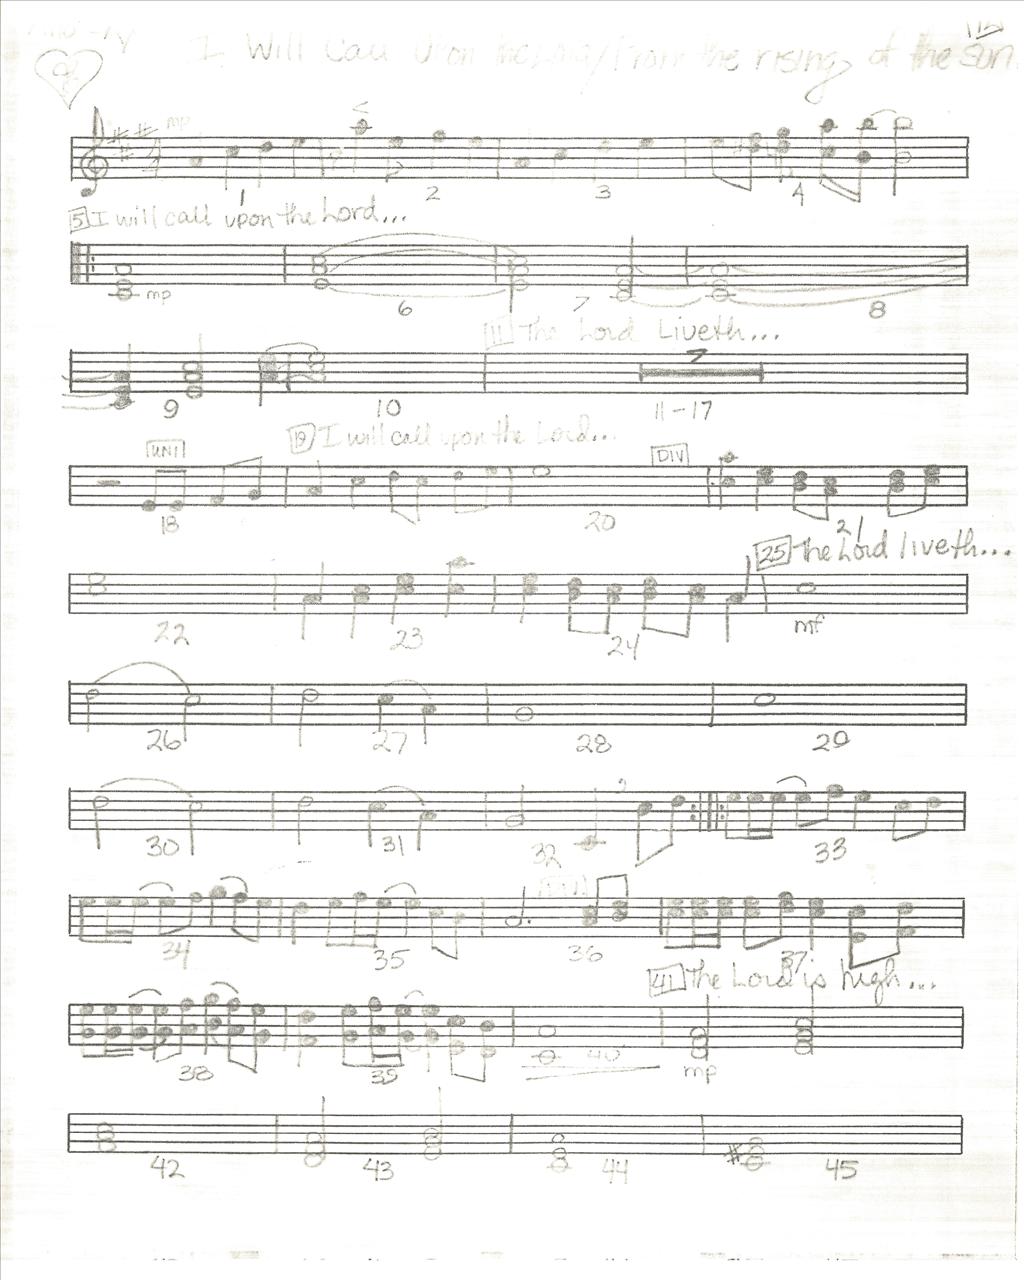 I Will Call Upon the Lord/From the rising of the sun.
mp
1 2 3 4
5 I will call upon the Lord...
mp 6 7 8
11 The Lord Liveth...
7
9 10 11-17
UNI 19 I will call upon the Lord...
DIV
18 20 21
25 The Lord liveth...
22 23 24 mf
26 27 28 29
30 31 32 33
34 35 36 37
41 The Lord is high...
38 39 40 mp
42 43 44 45